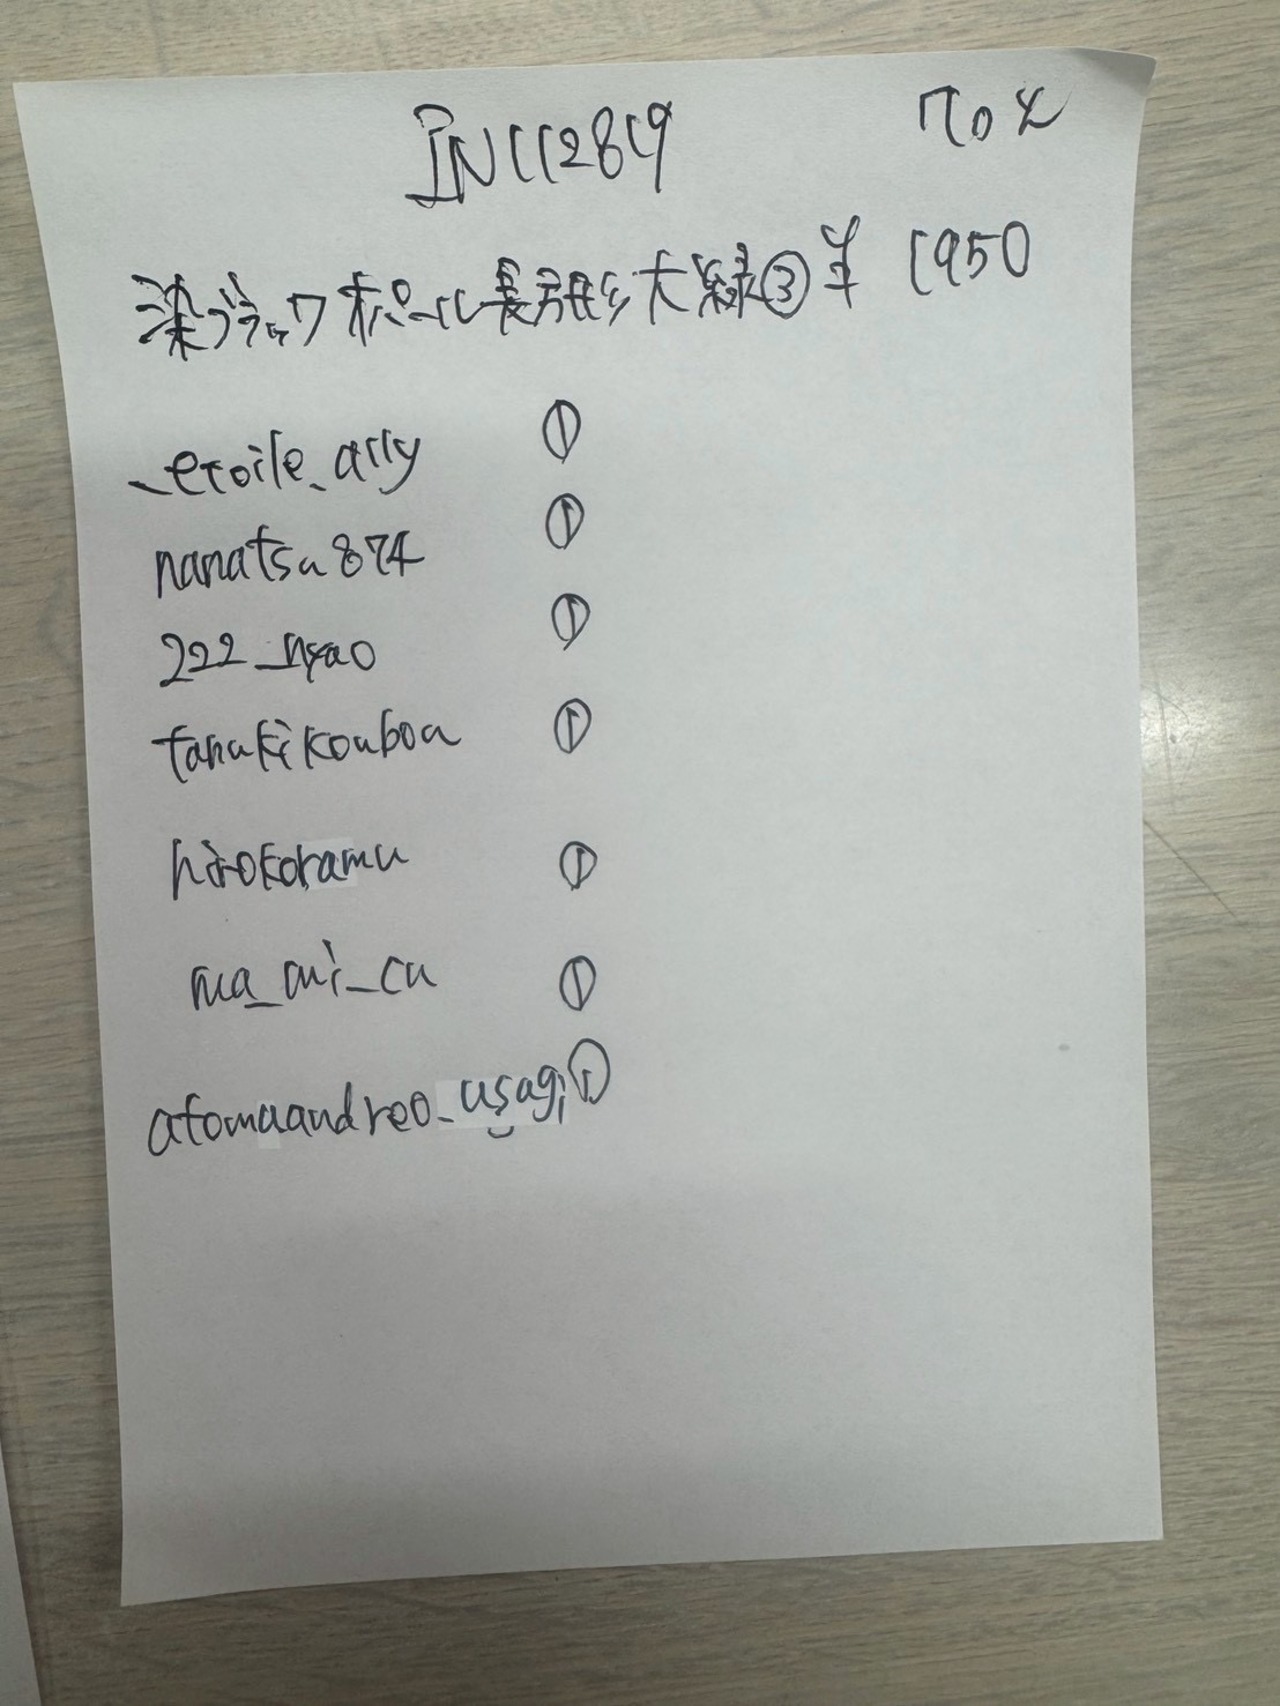 IN112819 70%
染ブラック木ポール長方形大緑③ ¥1950
_etoile_ally ①
nanatsu874 ①
222_nyao ①
tanukikouboa ①
hirokoramu ①
ma_mi_cu ①
atomaandreo_usagi ①